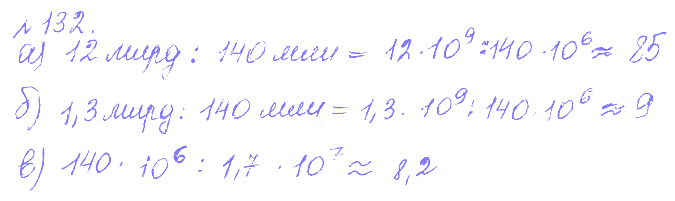 №132.
а) 12 млрд : 140 млн = 12·10⁹:140·10⁶ ≈ 85
б) 1,3 млрд : 140 млн = 1,3·10⁹:140·10⁶ ≈ 9
в) 140·10⁶ : 1,7·10⁷ ≈ 8,2